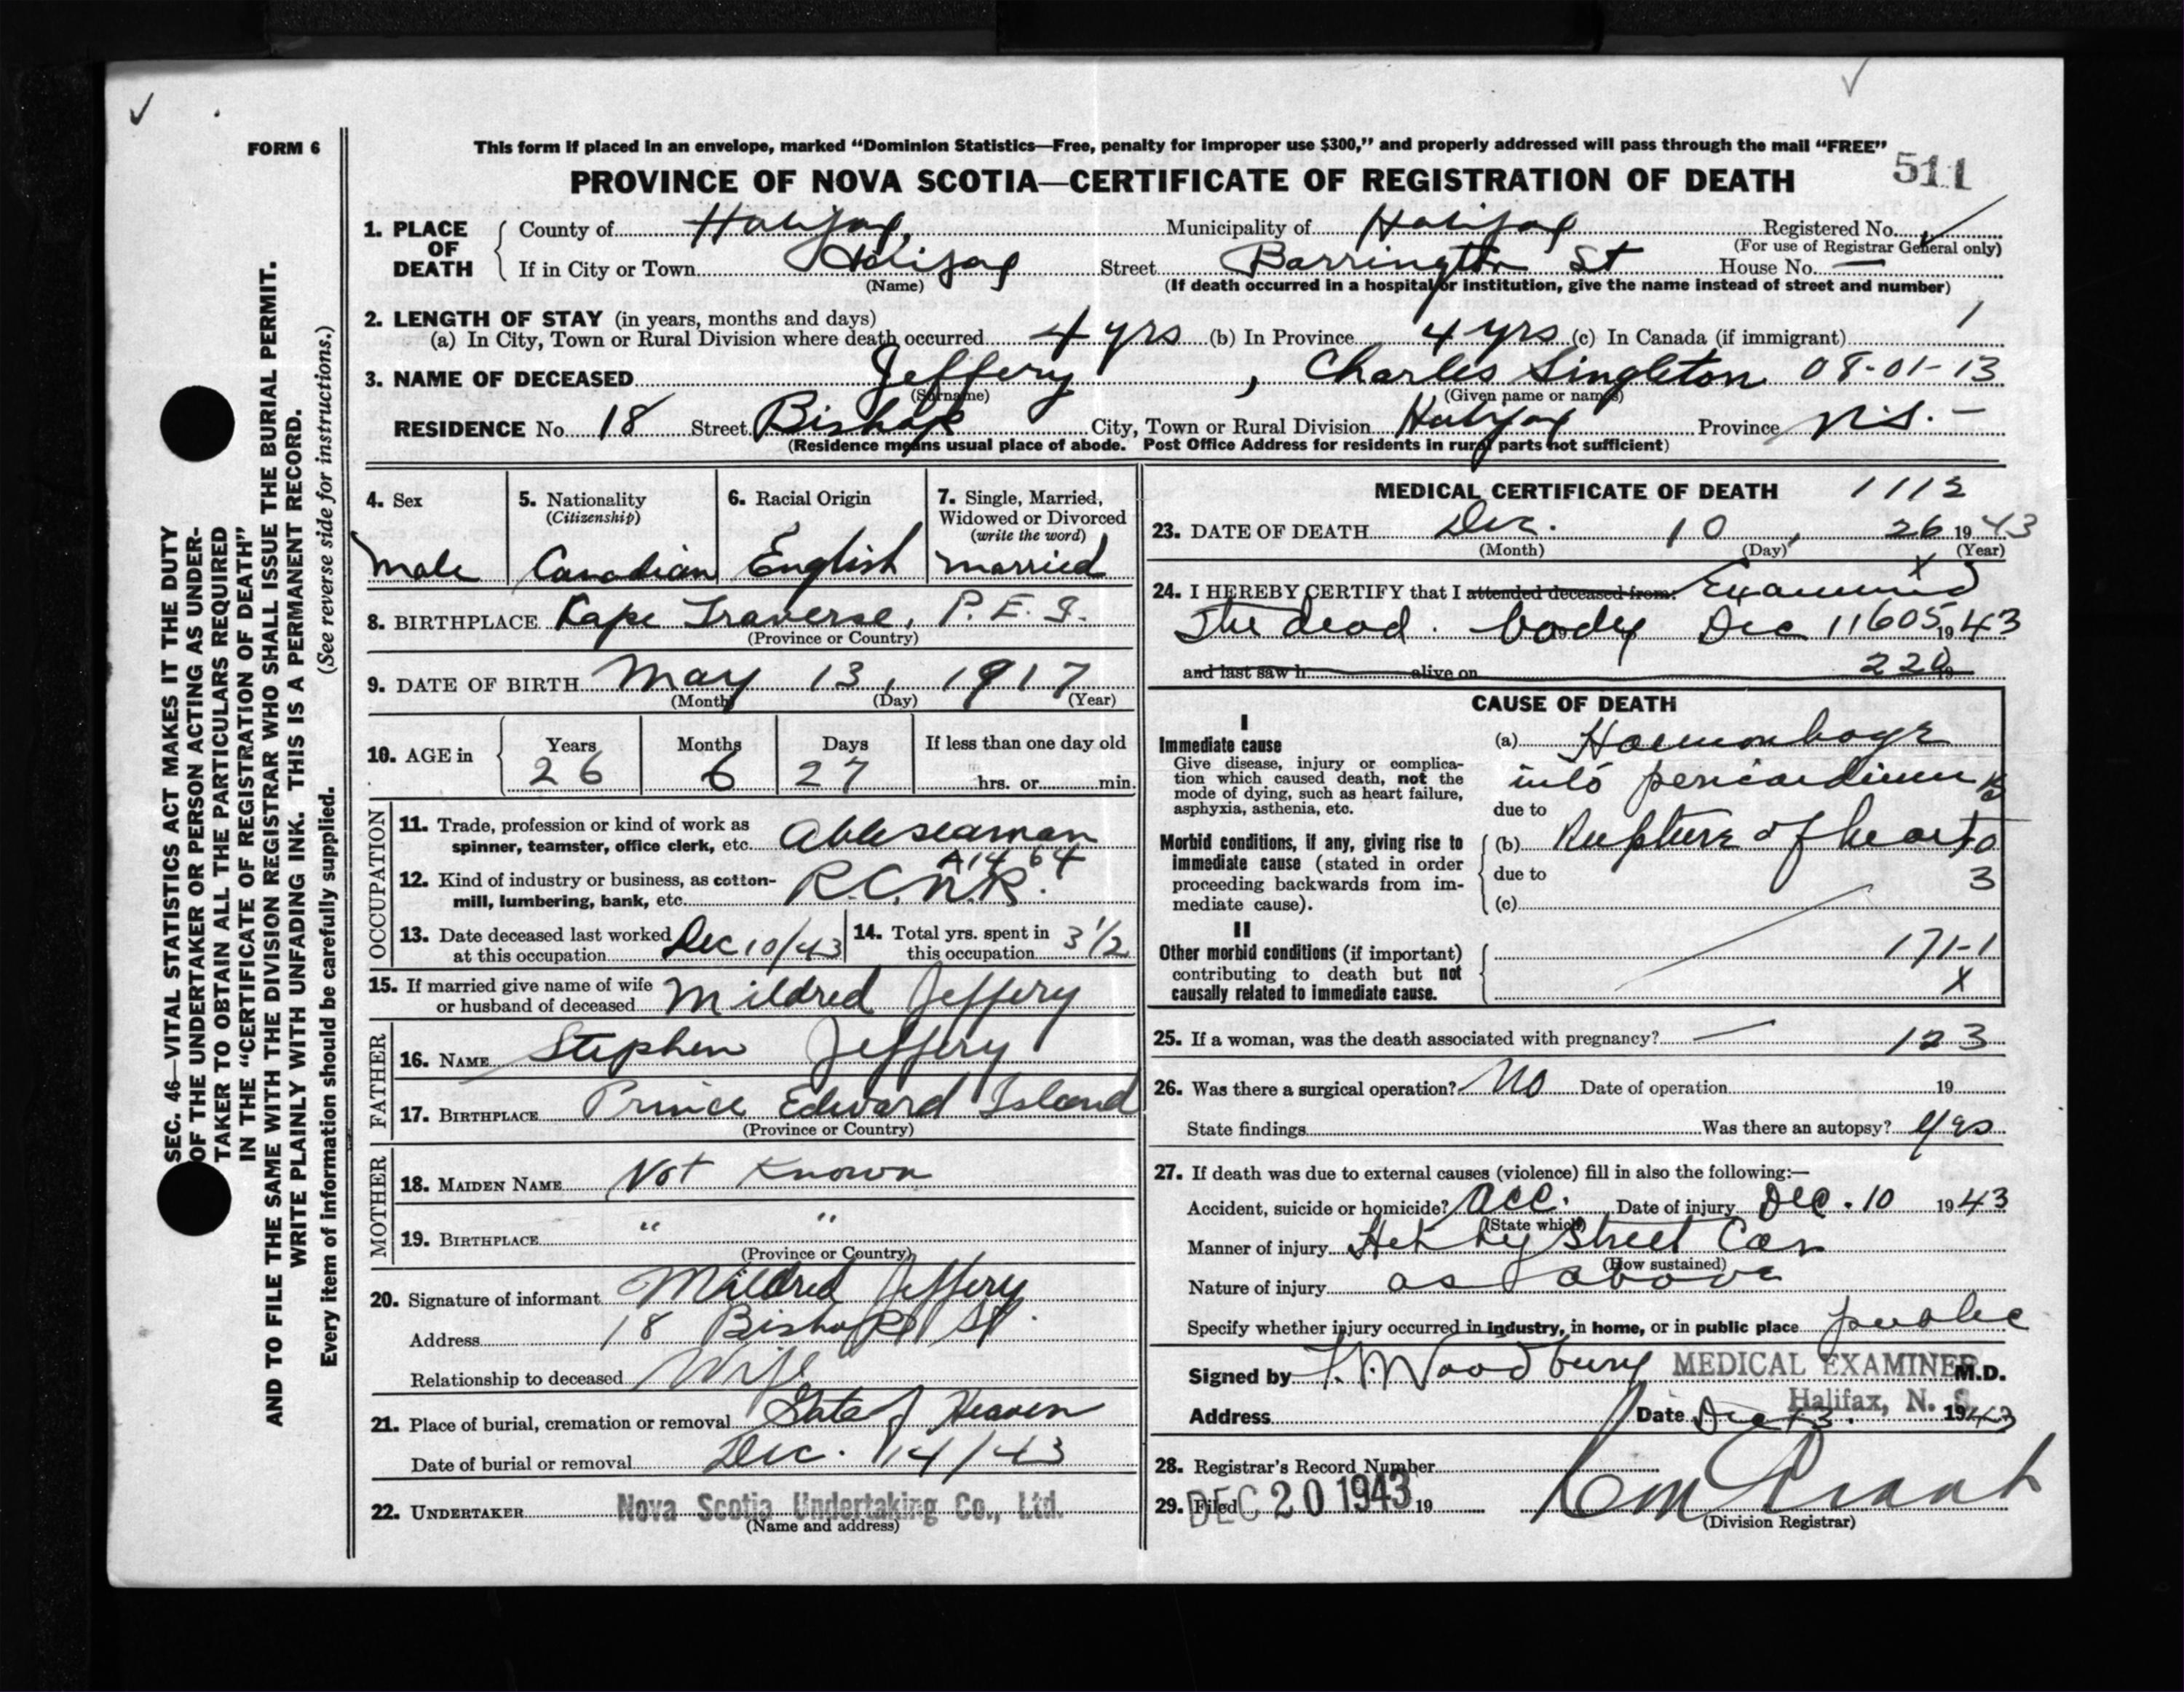 FORM 6
This form if placed in an envelope, marked “Dominion Statistics—Free, penalty for improper use $300,” and properly addressed will pass through the mail “FREE”
PROVINCE OF NOVA SCOTIA—CERTIFICATE OF REGISTRATION OF DEATH 511
1. PLACE OF DEATH County of Halifax, Municipality of Halifax Registered No.
(For use of Registrar General only)
If in City or Town Halifax Street Barrington St House No. —
(Name) (If death occurred in a hospital or institution, give the name instead of street and number)
2. LENGTH OF STAY (in years, months and days) 1
(a) In City, Town or Rural Division where death occurred 4 yrs (b) In Province 4 yrs (c) In Canada (if immigrant)
3. NAME OF DECEASED Jeffery, Charles Singleton 08-01-13
(Surname) (Given name or names)
RESIDENCE No. 18 Street Bishop City, Town or Rural Division Halifax Province N.S. —
(Residence means usual place of abode. Post Office Address for residents in rural parts not sufficient)
4. Sex 5. Nationality 6. Racial Origin 7. Single, Married,
(Citizenship) Widowed or Divorced
(write the word)
Male Canadian English married
8. BIRTHPLACE Kape Traverse, P.E.I.
(Province or Country)
9. DATE OF BIRTH May 13, 1917
(Month) (Day) (Year)
10. AGE in Years Months Days If less than one day old
26 6 27 hrs. or min.
OCCUPATION
11. Trade, profession or kind of work as
spinner, teamster, office clerk, etc. Able seaman
A1464
12. Kind of industry or business, as cotton-
mill, lumbering, bank, etc. R.C.N.R.
13. Date deceased last worked
at this occupation Dec 10/43
14. Total yrs. spent in
this occupation 3 1/2
15. If married give name of wife
or husband of deceased Mildred Jeffery
FATHER
16. NAME Stephen Jeffery
17. BIRTHPLACE Prince Edward Island
(Province or Country)
MOTHER
18. MAIDEN NAME Not Known
19. BIRTHPLACE " "
(Province or Country)
20. Signature of informant Mildred Jeffery
Address 18 Bishop St.
Relationship to deceased Wife
21. Place of burial, cremation or removal Gate of Heaven
Date of burial or removal Dec. 14/43
22. UNDERTAKER Nova Scotia Undertaking Co., Ltd.
(Name and address)
MEDICAL CERTIFICATE OF DEATH 1112
23. DATE OF DEATH Dec. 10, 26 1943
(Month) (Day) (Year)
x
24. I HEREBY CERTIFY that I attended deceased from: Examined
The dead body Dec 11 605 19 43
and last saw h alive on 220 19
CAUSE OF DEATH
I
Immediate cause
Give disease, injury or complica-
tion which caused death, not the
mode of dying, such as heart failure,
asphyxia, asthenia, etc.
(a) Haemorrhage
into pericardium
due to
Morbid conditions, if any, giving rise to
immediate cause (stated in order
proceeding backwards from im-
mediate cause).
(b) Rupture of heart
due to 3
(c)
II
Other morbid conditions (if important)
contributing to death but not
causally related to immediate cause.
171-1
X
25. If a woman, was the death associated with pregnancy? — 123
26. Was there a surgical operation? No Date of operation 19
State findings Was there an autopsy? yes
27. If death was due to external causes (violence) fill in also the following:—
Accident, suicide or homicide? acc. Date of injury Dec. 10 1943
(State which)
Manner of injury Hit by Street Car
(How sustained)
Nature of injury as above
Specify whether injury occurred in industry, in home, or in public place public
Signed by Woodbury MEDICAL EXAMINER M.D.
Halifax, N. S.
Address Date Dec 13. 1943
28. Registrar's Record Number
29. Filed DEC 20 1943 19
(Division Registrar)
SEC. 46—VITAL STATISTICS ACT MAKES IT THE DUTY
OF THE UNDERTAKER OR PERSON ACTING AS UNDER-
TAKER TO OBTAIN ALL THE PARTICULARS REQUIRED
IN THE “CERTIFICATE OF REGISTRATION OF DEATH”
AND TO FILE THE SAME WITH THE DIVISION REGISTRAR WHO SHALL ISSUE THE BURIAL PERMIT.
WRITE PLAINLY WITH UNFADING INK. THIS IS A PERMANENT RECORD.
Every item of information should be carefully supplied. (See reverse side for instructions.)